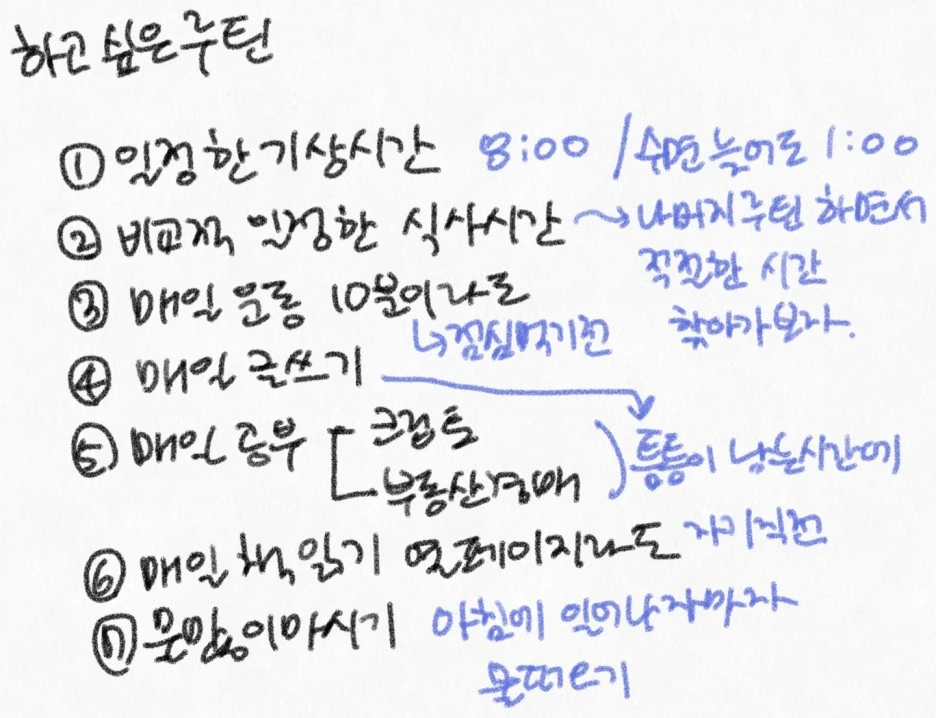 하고 싶은 루틴
① 일정한 기상시간 8:00 / 수면 늦어도 1:00
② 비교적 일정한 식사시간 → 나머지 루틴 하면서
적절한 시간
찾아가보자.
③ 매일 운동 10분이라도
↳ 점심먹기전
④ 매일 글쓰기
⑤ 매일 공부 크립토
부동산경매
틈틈이 남는시간에
⑥ 매일 책 읽기 열페이지라도 자기직전
⑦ 물많이마시기 아침에 일어나자마자
물떠오기